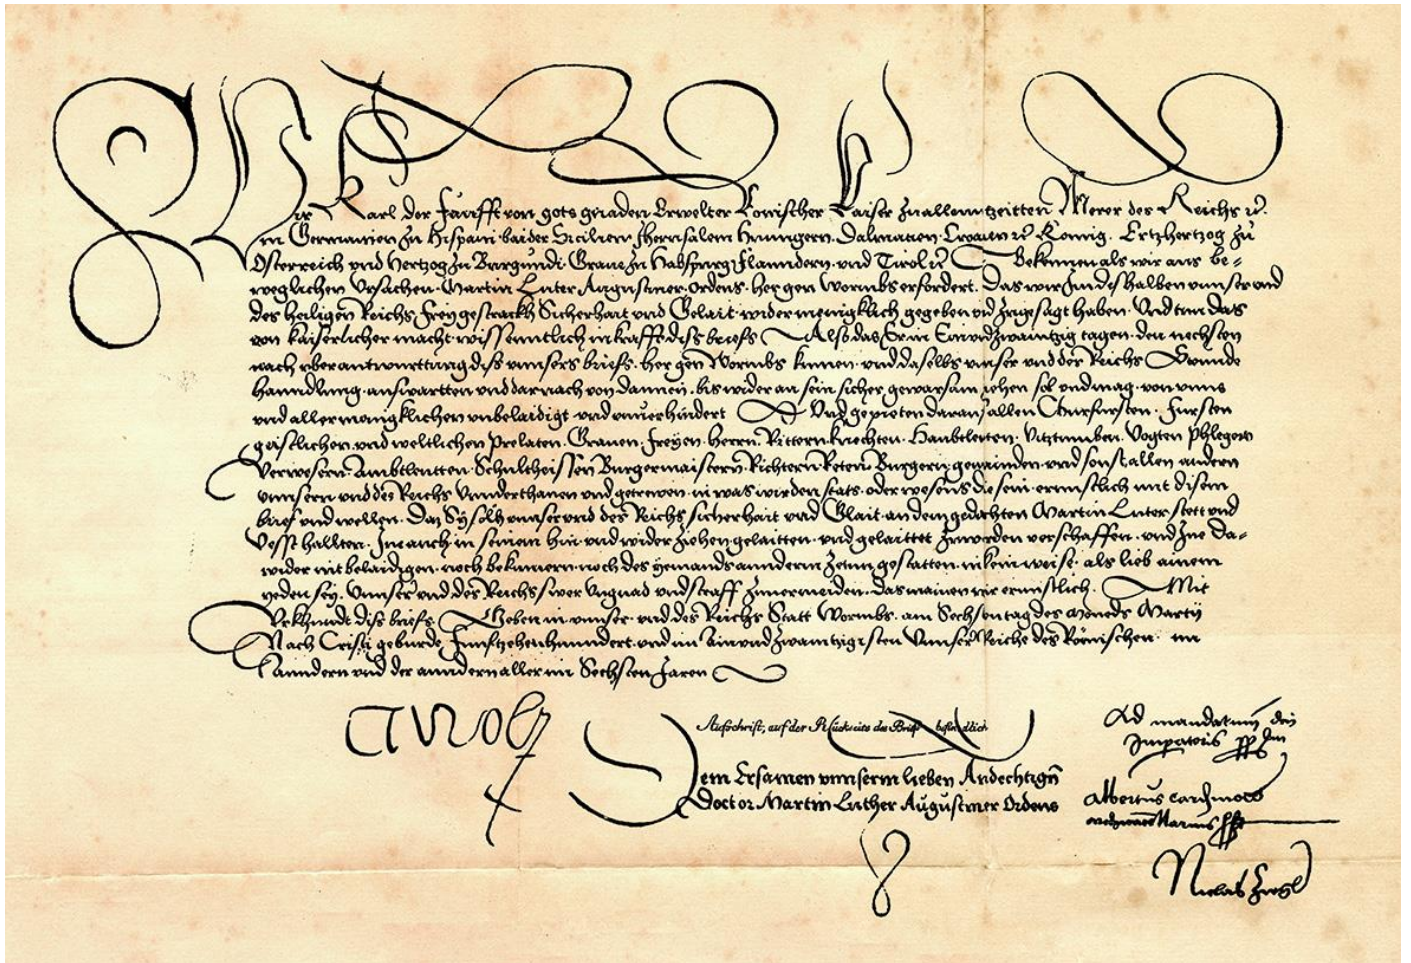 Wir Karl der Funfft von gots gnaden Erwelter Romischer Kaiser zu allenntzeitten Merer des Reichs ꝛc.
in Germanien zu Hispani baider Sicilien Jherusalem Hunngern. Dalmatien. Croatien ꝛc Konnig. Ertzhertzog zu
Osterreich vnd Hertzog zu Burgundi. Graue zu Habspurg Flanndern. vnd Tirol ꝛc Bekennen als wir aus be=
weglichen Vrsachen. Martin Luter Augustiner. ordens. her gen Wormbs erfordert. Das wir Im deshalben vnnser vnd
des heiligen Reichs, Frey gestrackh Sicherhait vnd Gelait. wider menigklich gegeben vnd zugesagt haben. Vnd tun das
von kaiserlicher macht. wissenntlich in krafft diss briefs Also das Er in Einvndzwaintzig tagen. den nechsten
nach vberantwurttung diss vnnsers briefs. her gen Wormbs kumen. vnd daselbs vnser vnd der Reichs Stennde
hanndlung. auswartten vnd darnach von dannen. bis wider an sein sicher gewarsam ziehen sol vnd mag. von vnns
vnd allermenigklichen vnbelaidigt vnd vnuerhindert Vnd gepieten darauf allen Churfursten. Fursten
geistlichen. vnd weltlichen Prelaten. Grauen. Freyen. Herrn. Rittern. knechten. Haubtleuten. Vitztumben. Vogten Phlegern
Verwesern. Ambtleutten. Schultheissen Burgermaistern. Richtern. Reten. Burgern. gemainden. vnd sonst allen andern
vnnsern vnd des Reichs Vnnderthanen vnd getrewen. in was wirden stats. oder wesens die sein. ernnstlich mit disem
brief vnd wellen. Daz Sy solh vnnser vnd des Reichs sicherhait vnd Glait. an dem gedachten Martin Luter stett vnd
Vesst hallten. Ine auch in seinem hin. vnd wider ziehen gelaitten. vnd gelaittet zuwerden verschaffen. vnd Ine da=
wider nit belaidigen. noch bekumern. noch des yemands annderm zetun gestatten. in kein weise. als lieb ainem
yeden sey. Vnnser vnd des Reichs swer Vngnad vnd straff zuuermeiden. das mainen wir ernnstlich. Mit
Vrkhundt diss briefs. Geben in vnnser. vnd des Reichs Statt Wormbs. am Sechsten tag des moneds Martij
Nach Cristi geburde, Funffzehenhundert. vnd im Ainvndzwaintzigisten Vnnser Reiche des Römischen. im
anndern vnd der anndern aller im Sechsten Jaren
Carolus
Aufschrift, auf der Rückseite des Briefs befindlich
Dem Ersamen vnnserm lieben Andechtign̄
Doctor Martin Luther Augustiner Ordens
Ad mandatum dnj
Imperatoris ppm
Albertus Cardinalis
archicancellarius
Niclas Ziegl